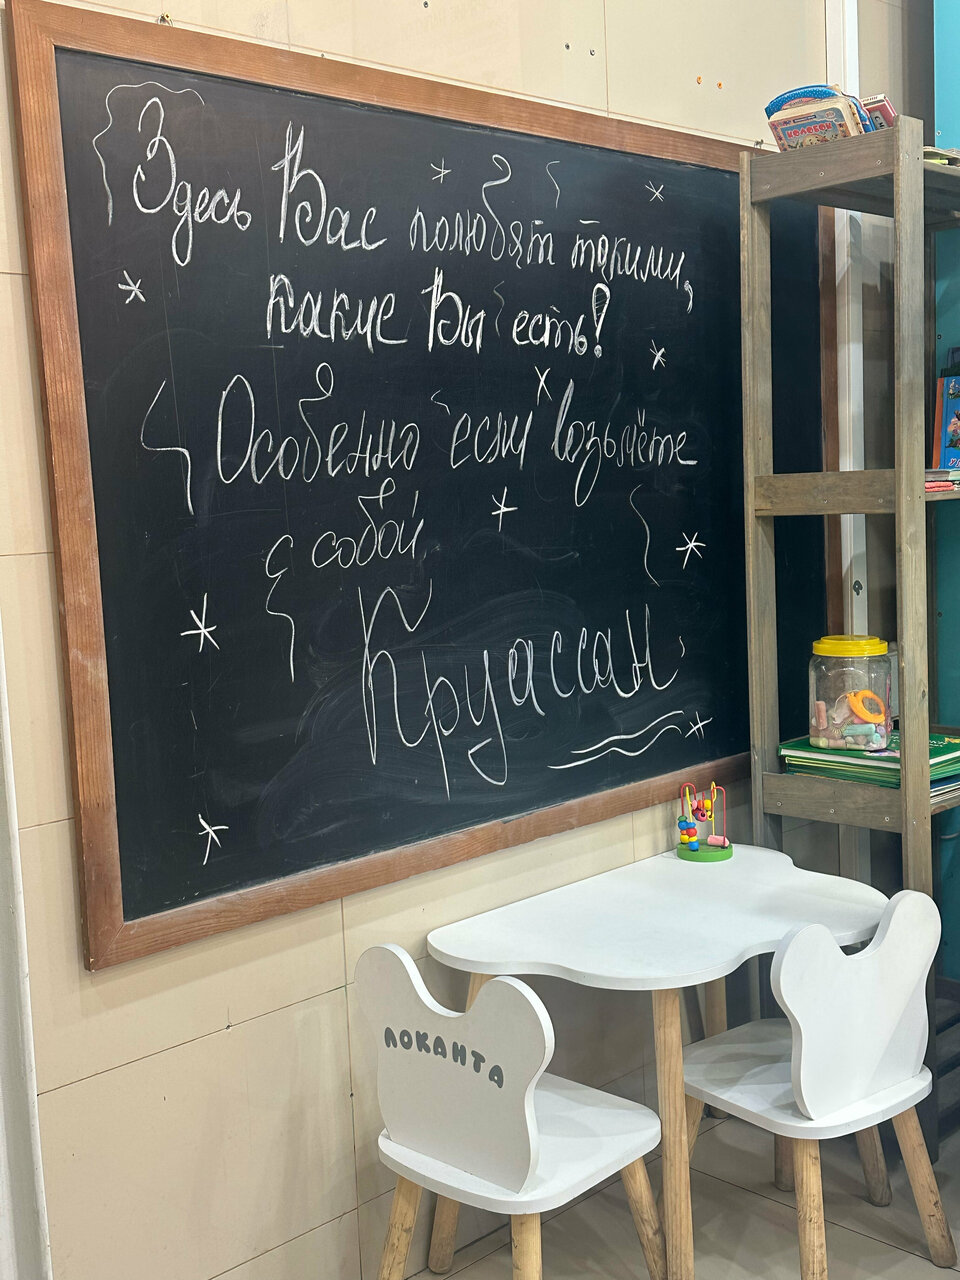 Здесь Вас полюбят такими,
какие Вы есть!
Особенно если возьмёте
с собой
Круассан
КОЛОБОК
ЛОКАНТА